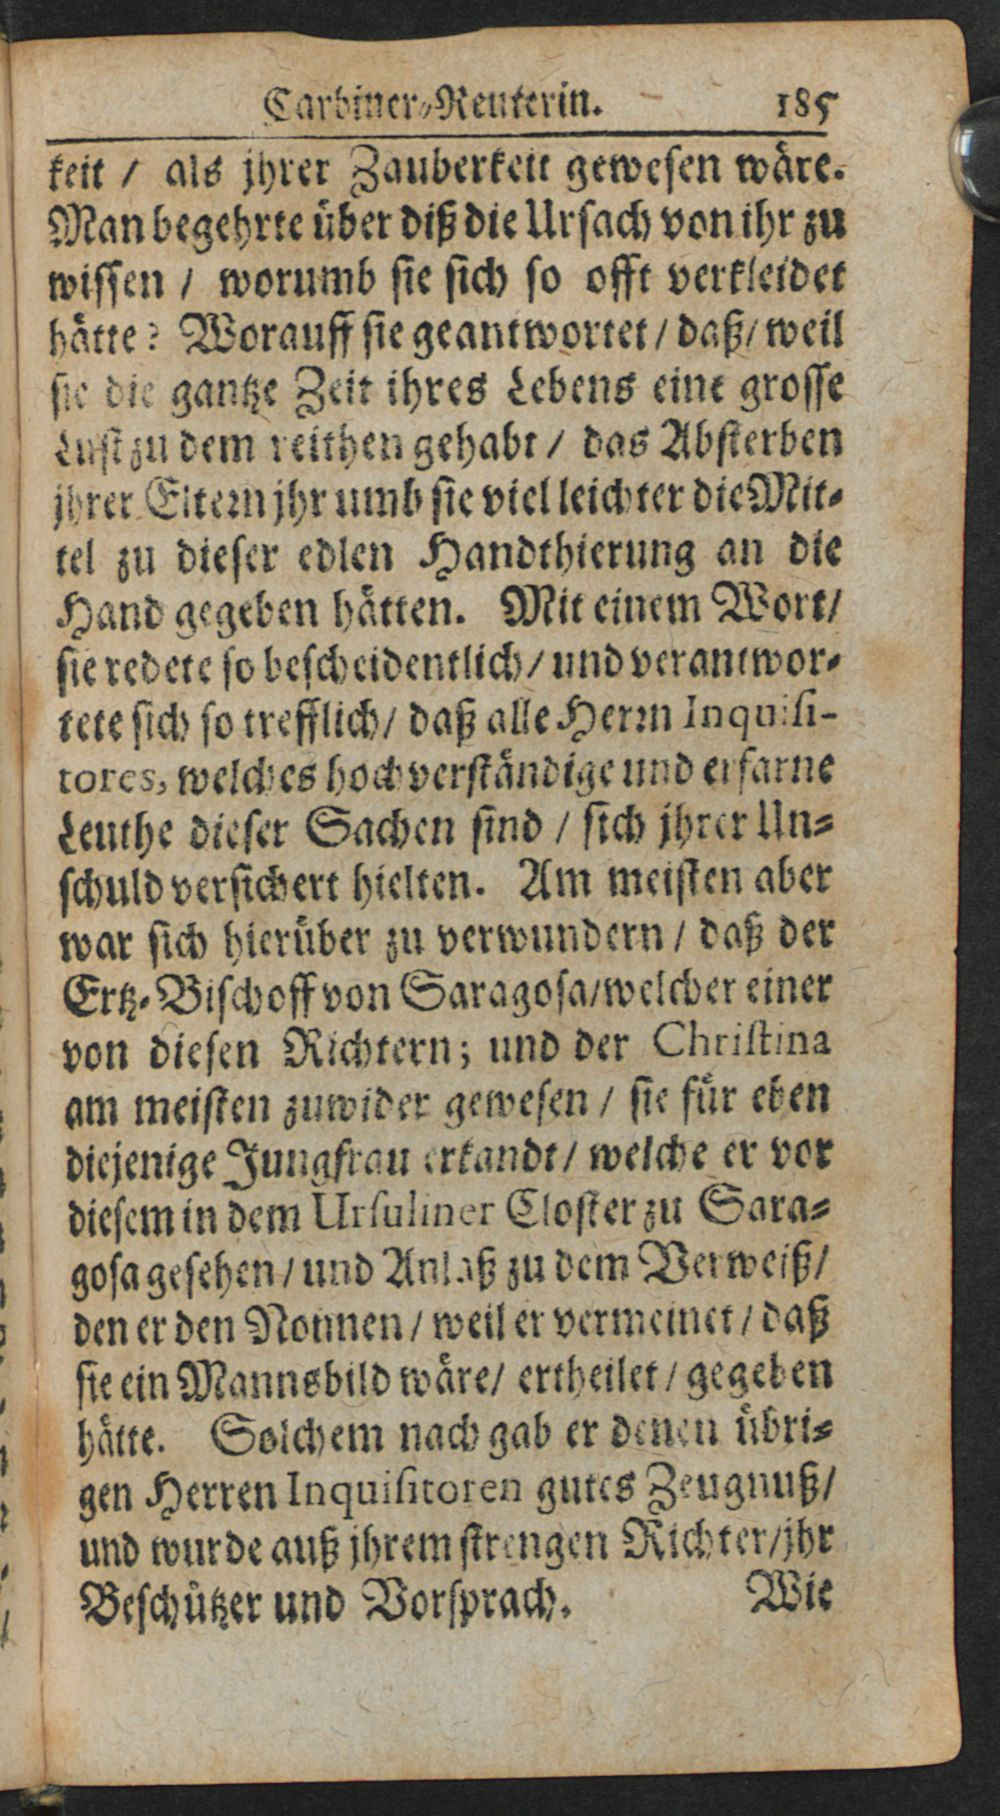 Carbiner-Reuterin. 185
keit / als jhrer Zauberkeit gewesen wäre.
Man begehrte über diß die Ursach von ihr zu
wissen / worumb sie sich so offt verkleidet
hätte? Worauff sie geantwortet / daß / weil
sie die gantze Zeit ihres Lebens eine grosse
Lust zu dem reithen gehabt / das Absterben
jhrer Eltern jhr umb sie viel leichter die Mit-
tel zu dieser edlen Handthierung an die
Hand gegeben hätten. Mit einem Wort /
sie redete so bescheidentlich / und verantwor-
tete sich so trefflich / daß alle Herrn Inquisi-
tores, welches hochverständige und erfarne
Leuthe dieser Sachen sind / sich jhrer Un-
schuld versichert hielten. Am meisten aber
war sich hierüber zu verwundern / daß der
Ertz-Bischoff von Saragosa / welcher einer
von diesen Richtern; und der Christina
am meisten zuwider gewesen / sie für eben
diejenige Jungfrau erkandt / welche er vor
diesem in dem Ursuliner Closter zu Sara-
gosa gesehen / und Anlaß zu dem Verweiß /
den er den Nonnen / weil er vermeinet / daß
sie ein Mannsbild wäre / ertheilet / gegeben
hätte. Solchem nach gab er denen übri-
gen Herren Inquisitoren gutes Zeugnuß /
und wurde auß jhrem strengen Richter / jhr
Beschützer und Vorsprach. Wie